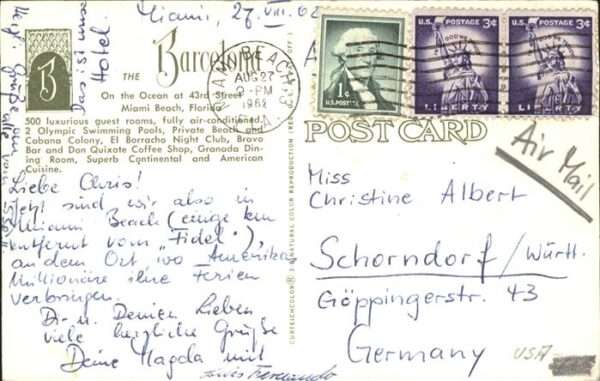 Miami, 27. VIII. 62
Das ist unser
Hotel.
B
THE Barcelona
On the Ocean at 43rd Street
Miami Beach, Florida
500 luxurious guest rooms, fully air-conditioned.
2 Olympic Swimming Pools, Private Beach and
Cabana Colony, El Borracho Night Club, Bravo
Bar and Don Quixote Coffee Shop, Granada Din-
ing Room, Superb Continental and American
Cuisine.
Liebe Chris!
Jetzt sind wir also in
Miami Beach (einige km
entfernt vom „Fidel"),
an dem Ort wo Amerikas
Millionäre ihre Ferien
verbringen.
Dir u. Deinen Lieben
viele herzliche Grüße
Deine Magda mit
Luis Fernando
MIAMI BEACH
AUG 27
PM
1962
FLA
1¢
U.S. POSTAGE
U.S. POSTAGE 3¢
IN GOD WE TRUST
LIBERTY
U.S. POSTAGE 3¢
IN GOD WE TRUST
LIBERTY
POST CARD
Air Mail
CURTEICHCOLOR ® 3-D NATURAL COLOR REPRODUCTION
Miss
Christine Albert
Schorndorf / Württ.
Göppingerstr. 43
Germany
USA